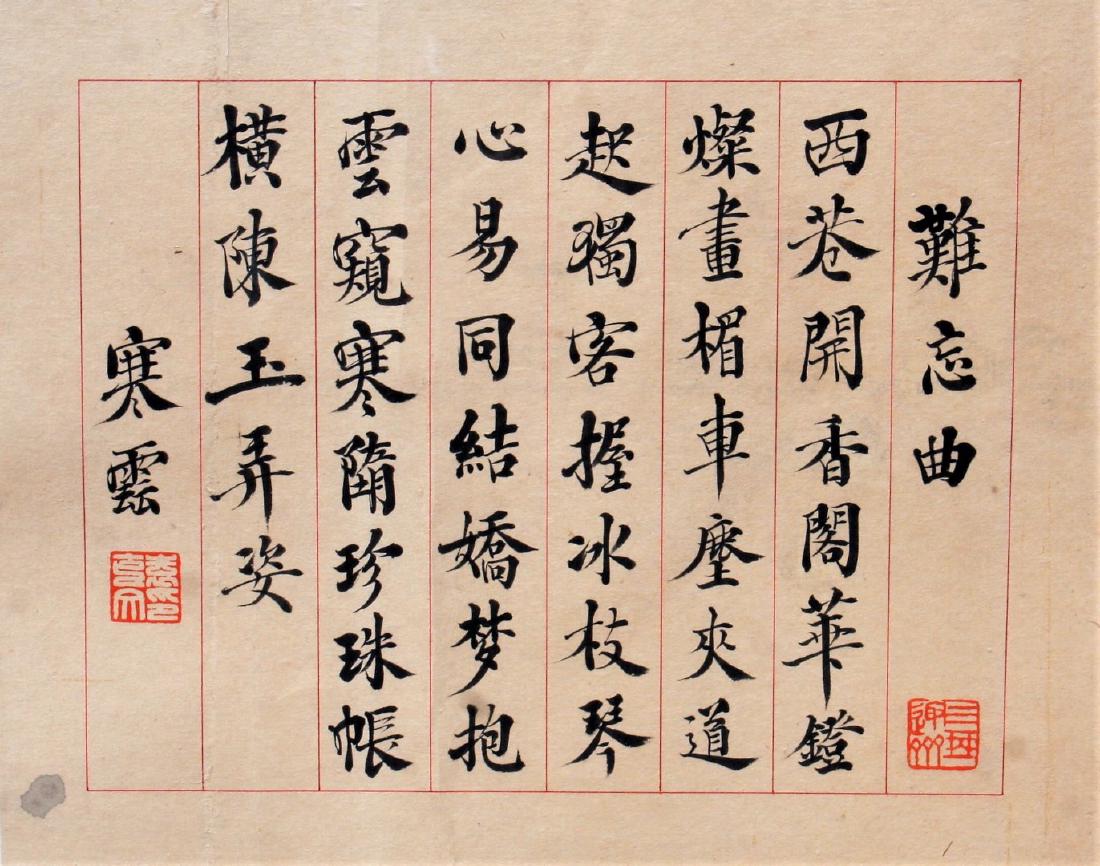 難忘曲
西巷開香閣華鐙
燦畫楣車塵夾道
起獨客握冰枝琴
心易同結嬌梦抱
雲窺寒隋珍珠帳
橫陳玉弄姿
寒雲